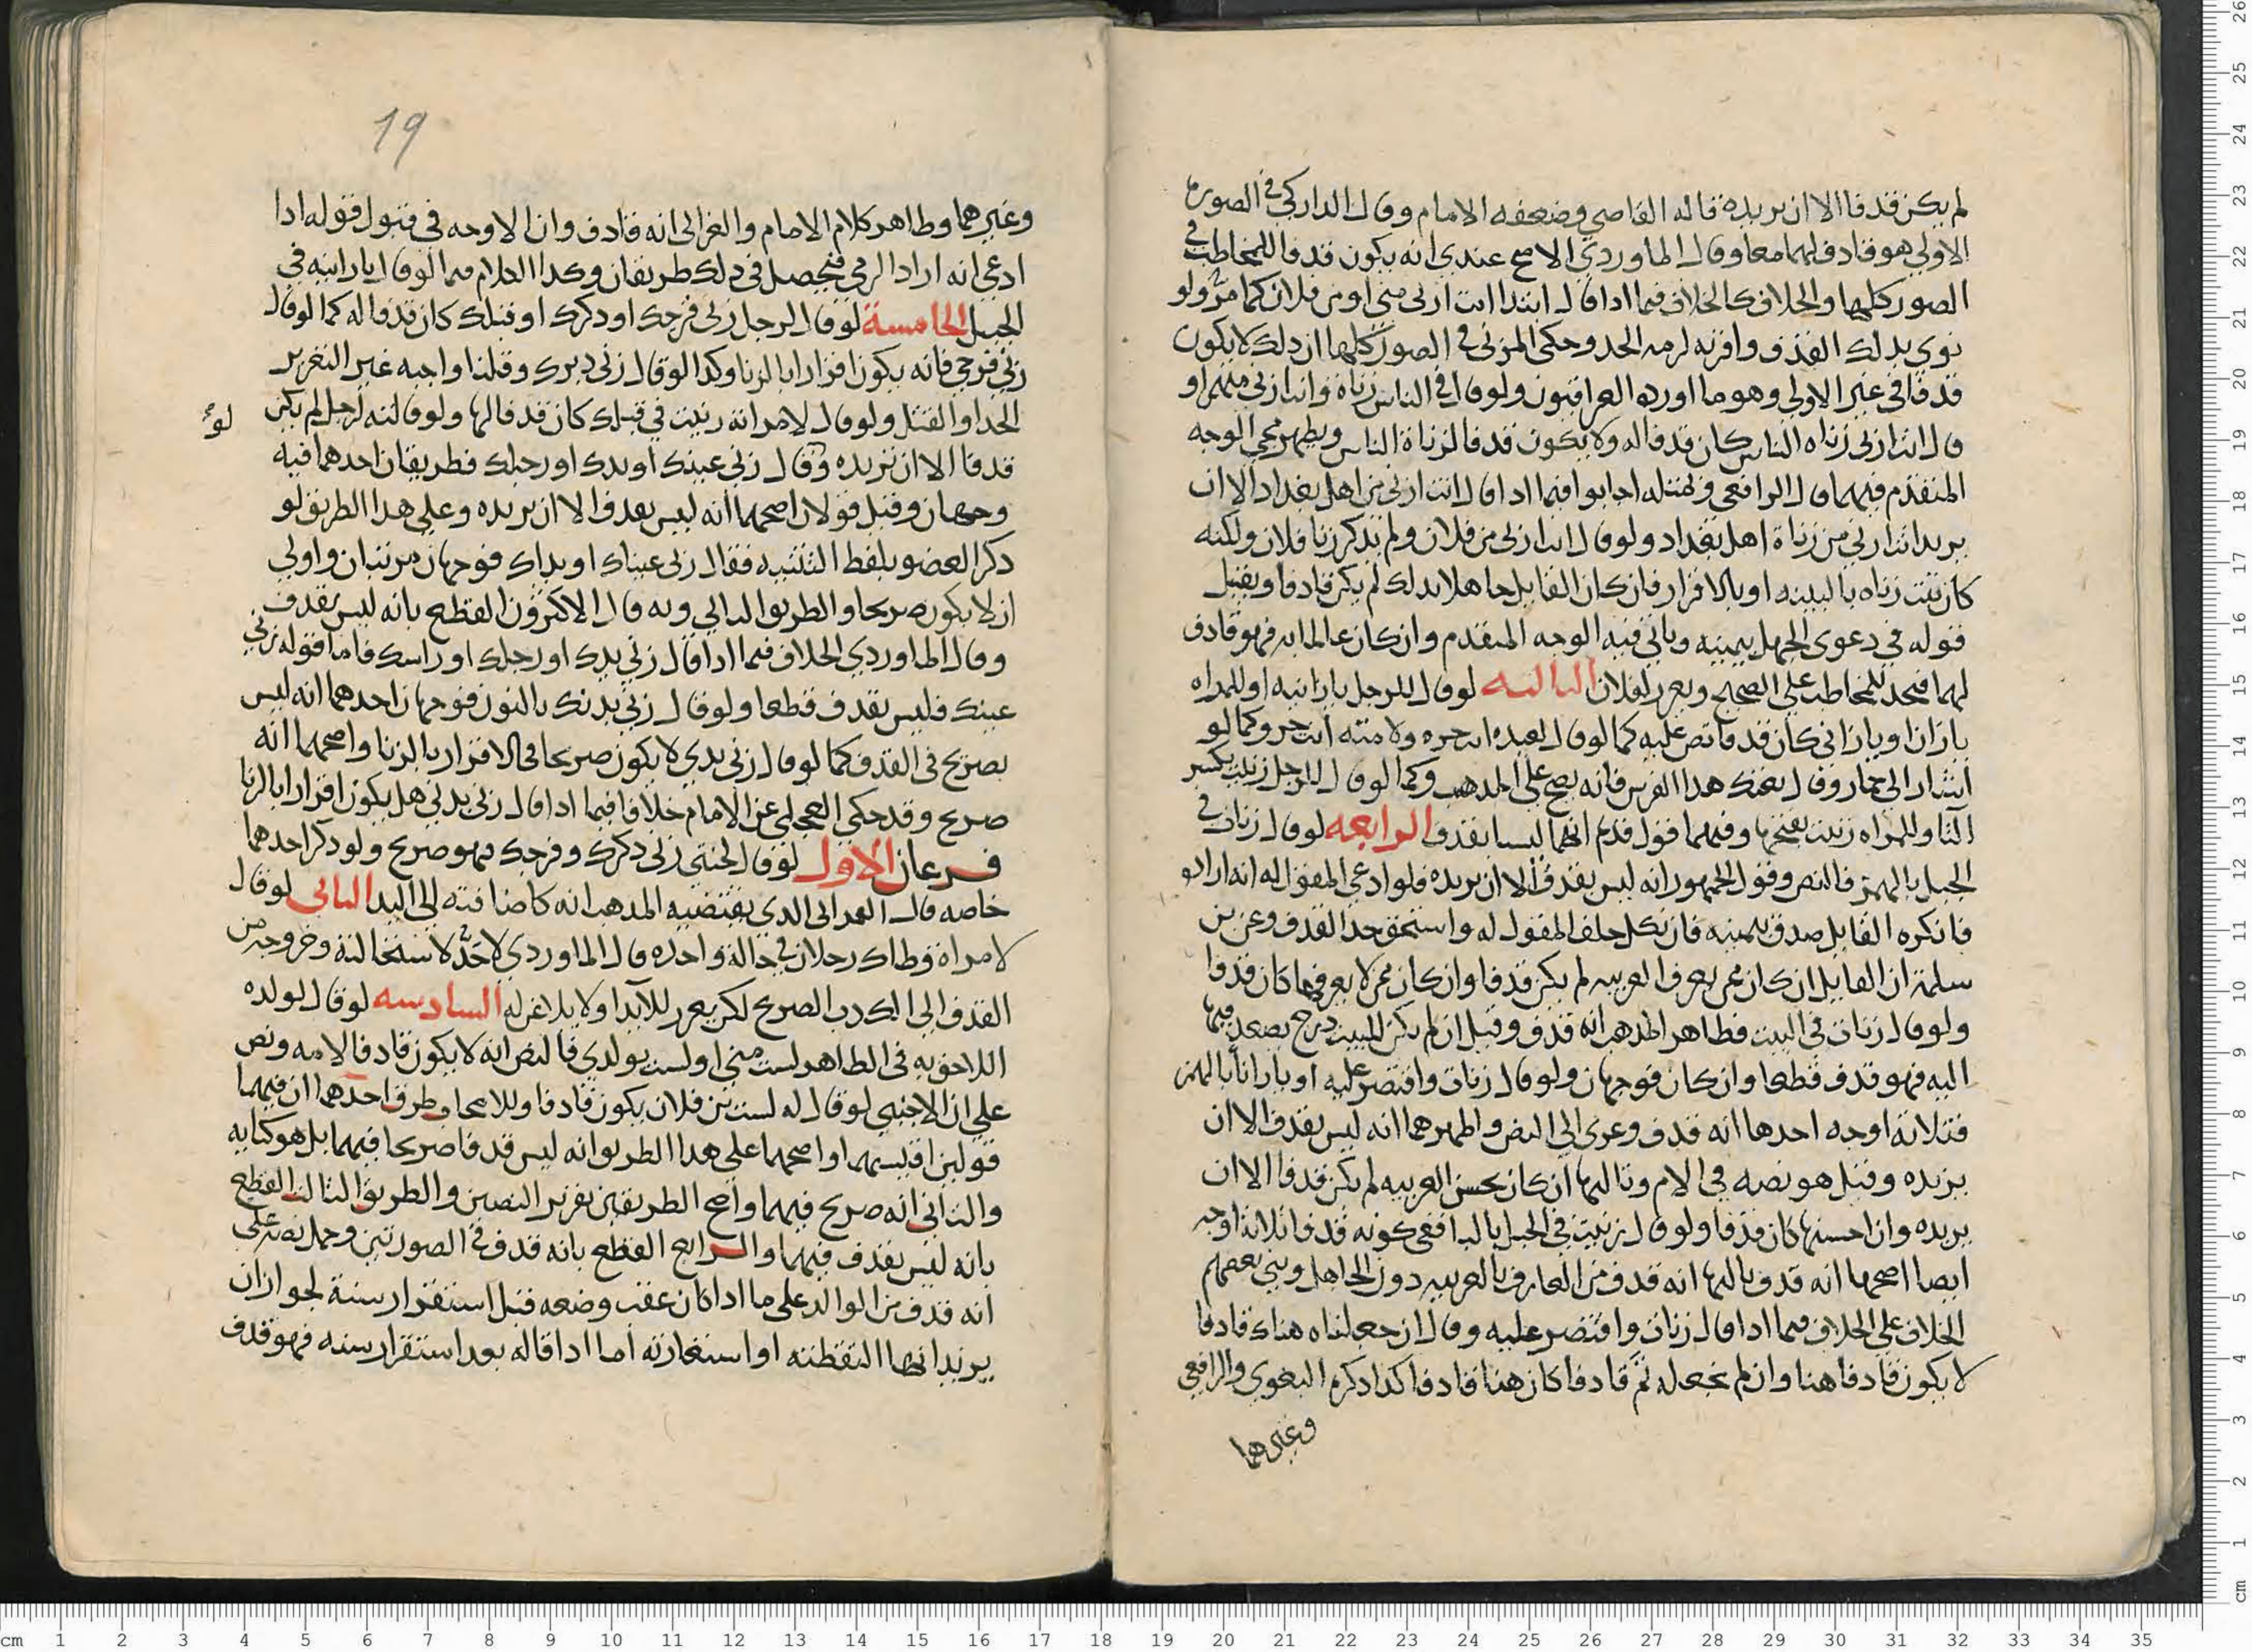 لم يكن قدفا الا ان يريده قاله القاضي وضعفه الامام وقال الداركي في الصورة
الاولي هو قادف لهما معا وقال الماوردي الاصح عندي انه يكون قدفا للمخاطب في
الصور كلها والخلاف كالخلاف فيما ادا قال ابتدا انت ازنى مني او من فلان كما مر ولو
نوي بدلك القذف وافر به لزمه الحد وحكي المزني في الصور كلها ان دلك لا يكون
قدفا في غير الاولي وهو ما اورده العراقيون ولو قال في الناس زناة وانت ازني منهم او
قال انت ازنى زناه الناس كان قدفا له ولا يكون قدفا لزناة الناس ويظهر مجي الوجه
المتقدم فيهما قال الرافعي وبمثله اجابوا فيما ادا قال انت ازنى من اهل بغداد الا ان
يريد انت ازني من زناة اهل بغداد ولو قال انت ازنى من فلان ولم يذكر زنا فلان ولكنه
كان ثبت زناه بالبينه او بالاقرار فان كان القايل جاهلا بدلك لم يكن قادفا ويقبل
قوله في دعوى الجهل بيمينه وياتي فيه الوجه المتقدم وان كان عالما به فهو قادف
لهما فيحد للمخاطب على الصحيح ويعزر لفلان الثالثه لو قال للرجل يا زانيه او للمراه
يا زان او يا زاني كان قدفا نص عليه كما لو قال لعبده انت حره ولامته انت حر وكما لو
اشار الى حمار وقال بعتك هذا الفرس فانه يصح على المدهب وكما لو قال للرجل زنيت بكسر
التا وللمراه زنيت بفتحها وفيهما قول قدم انهما ليسا بقدف الرابعه لو قال زنات في
الجبل بالهمز فالنص وقول الجمهور انه ليس بقدف الا ان يريده فلو ادعى المقول له انه اراده
فانكره القايل صدق بيمينه فان نكل حلف المقول له واستحق حد القدف وعن بن
سلمة ان القايل ان كان ممن يعرف العربيه لم يكن قدفا وان كان ممن لا يعرفها كان قدفا
ولو قال زنات في البيت فظاهر المدهب انه قدف وقيل ان لم يكن للبيت درج يصعد فيها
اليه فهو قدف قطعا وان كان فوجهان ولو قال زنات واقتصر عليه او يا زانا بالهمز
فثلاثة اوجه احدها انه قدف وعزى الى النص واظهرهما انه ليس بقدف الا ان
يريده وقيل هو نصه في الام وثالثها ان كان يحسن العربيه لم يكن قدفا الا ان
يريده وان احسنها كان قدفا ولو قال زنيت في الجبل باليا ففي كونه قدفا ثلاثة اوجه
ايضا اصحها انه قدف ثالثها انه قدف من العارف بالعربيه دون الجاهل وبنى بعضهم
الخلاف على الخلاف فيما ادا قال زنات واقتصر عليه وقال ان جعلناه هناك قادفا
لا يكون قادفا هنا وان لم نجعله ثم قادفا كان هنا قادفا كدا دكره البغوي والرافعي
وغيرهما
19
وغيرهما وظاهر كلام الامام والغزالى انه قادف وان الاوجه في قبول قوله ادا
ادعى انه اراد الرمي فتحصل في دلك طريقان وكدا الكلام فيما لو قال يا زانيه في
الجبل الخامسة لو قال لرجل زنى فرجك او دكرك او قبلك كان قدفا له كما لو قال
زنى فرجي فانه يكون اقرارا بالزنا وكدا لو قال زنى دبرك وقلنا واجبه غير التعزير
الحد او القتل ولو قال لامراته زنيت في قبلك كان قدفا لها ولو قالته لرجل لم يكن
لو
قدفا الا ان تريده وقال زنى عينك او يدك او رجلك فطريقان احدهما فيه
وجهان وقيل قولان اصحهما انه ليس بقدف الا ان يريده وعلى هدا الطريق لو
دكر العضو بلفظ التثنيه فقال زنى عيناك او يداك فوجهان مرتبان واولى
ان لا يكون صريحا والطريق الثاني وبه قال الاكثرون القطع بانه ليس بقدف
وقال الماوردي الخلاف فيما ادا قال زنى يدك او رجلك او راسك فاما قوله زنى
عينك فليس بقدف قطعا ولو قال زنى بدنك بالنون فوجهان احدهما انه ليس
بصريح في القدف كما لو قال زنى بدني لا يكون صريحا في الاقرار بالزنا واصحهما انه
صريح وقد حكى العجلى عن الامام خلافا فيما ادا قال زنى بدني هل يكون اقرارا بالزنا
فرعان الاول لو قال لخنثى زنى دكرك وفرجك فهو صريح ولو دكر احدهما
خاصه قال العمرانى الدي يقتضيه المدهب انه كاضافته إلى اليد الثاني لو قال
لامراة وطاك رجلان في حالة واحده قال الماوردي لا حد لاستحالته وخروجه من
القدف إلى الكدب الصريح لكن يعزر للايدا ولا يلاعن له السادسه لو قال لولده
اللاحق به في الظاهر لست مني او لست بولدي فالنص انه لا يكون قادفا لامه ونص
على ان الاجنبي لو قال له لست بن فلان يكون قادفا وللاصحاب طرق احدهما ان فيهما
قولين اقيسهما واصحهما على هدا الطريق انه ليس قدفا صريحا فيهما بل هو كنايه
والثاني انه صريح فيهما واصح الطريقين تقرير النصين والطريق الثالث القطع
بانه ليس بقذف فيهما والرابع القطع بانه قدف في الصورتين وحمل نصه على
انه قدف من الوالد على ما ادا كان عقب وضعه قبل استقرار سنة لجواز ان
يريد انها التقطته او استعارته أما ادا قاله بعد استقرار سنه فهو قدف